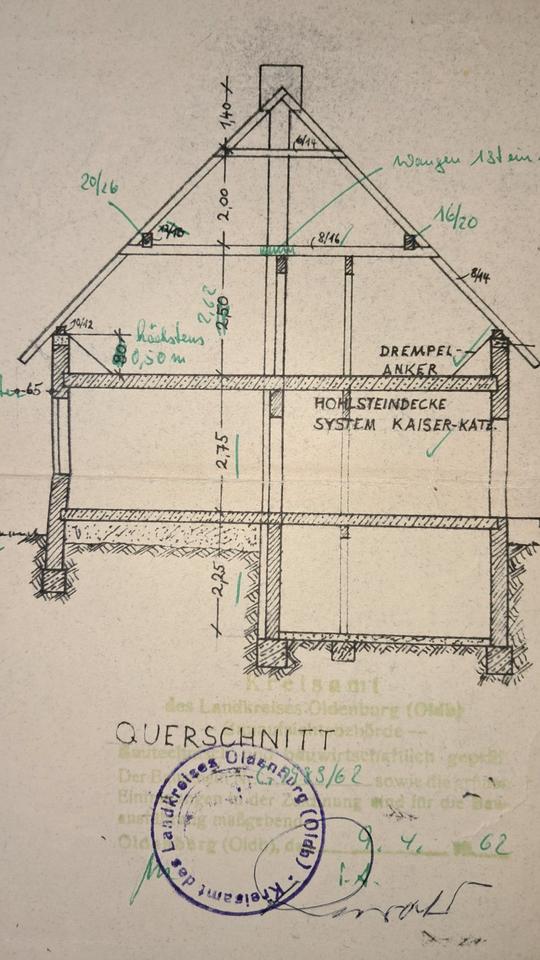 1,40
6/14
Wangen 1 Stein
20/26
2,00
16/20
8/16
8/14
10/12
2,62
2,50
höchstens
0,50 m
DREMPEL-
ANKER
65
HOHLSTEINDECKE
SYSTEM KAISER-KATZ.
2,75
2,25
Kreisamt
des Landkreises Oldenburg (Oldb)
QUERSCHNITT
Bautechnisch und bauwirtschaftlich geprüft
G 1983/62 sowie die grünen
Eintragungen in der Zeichnung sind für die Bau-
ausführung maßgebend
Oldenburg (Oldb), den 9. 4. 1962
I.A.
Kreisamt des Landkreises Oldenburg (Oldb)